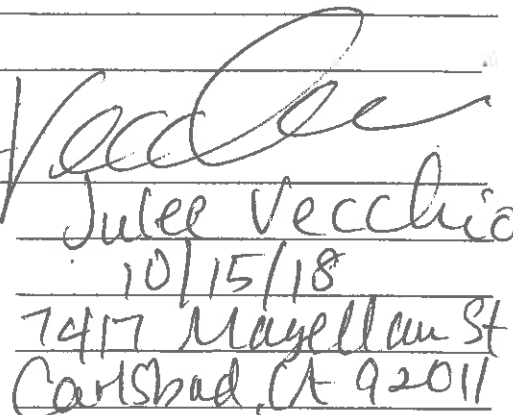 Vecchio
Julee Vecchio
10/15/18
7417 Magellan St
Carlsbad, CA 92011